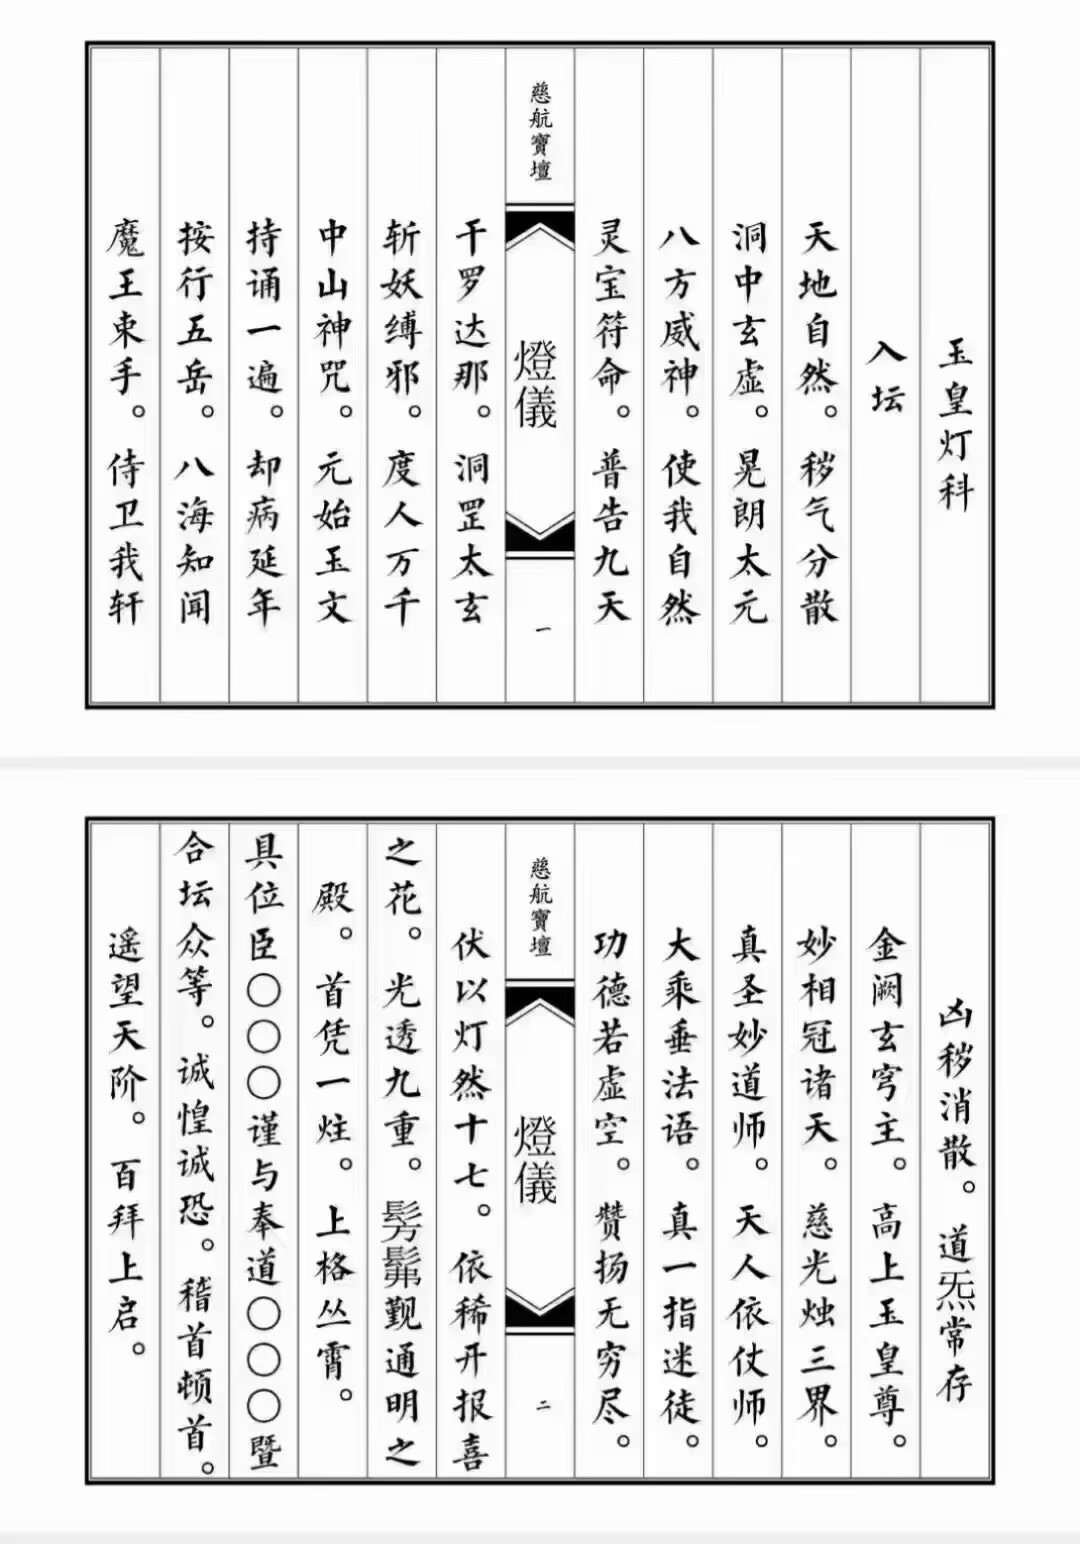 玉皇灯科
入坛
天地自然。秽气分散
洞中玄虚。晃朗太元
八方威神。使我自然
灵宝符命。普告九天
慈航寶壇
燈儀
一
干罗达那。洞罡太玄
斩妖缚邪。度人万千
中山神咒。元始玉文
持诵一遍。却病延年
按行五岳。八海知闻
魔王束手。侍卫我轩
凶秽消散。道炁常存
金阙玄穹主。高上玉皇尊。
妙相冠诸天。慈光烛三界。
真圣妙道师。天人依仗师。
大乘垂法语。真一指迷徒。
功德若虚空。赞扬无穷尽。
慈航寶壇
燈儀
二
伏以灯然十七。依稀开报喜
之花。光透九重。髣髴觐通明之
殿。首凭一炷。上格丛霄。
具位臣〇〇〇谨与奉道〇〇〇暨
合坛众等。诚惶诚恐。稽首顿首。
遥望天阶。百拜上启。